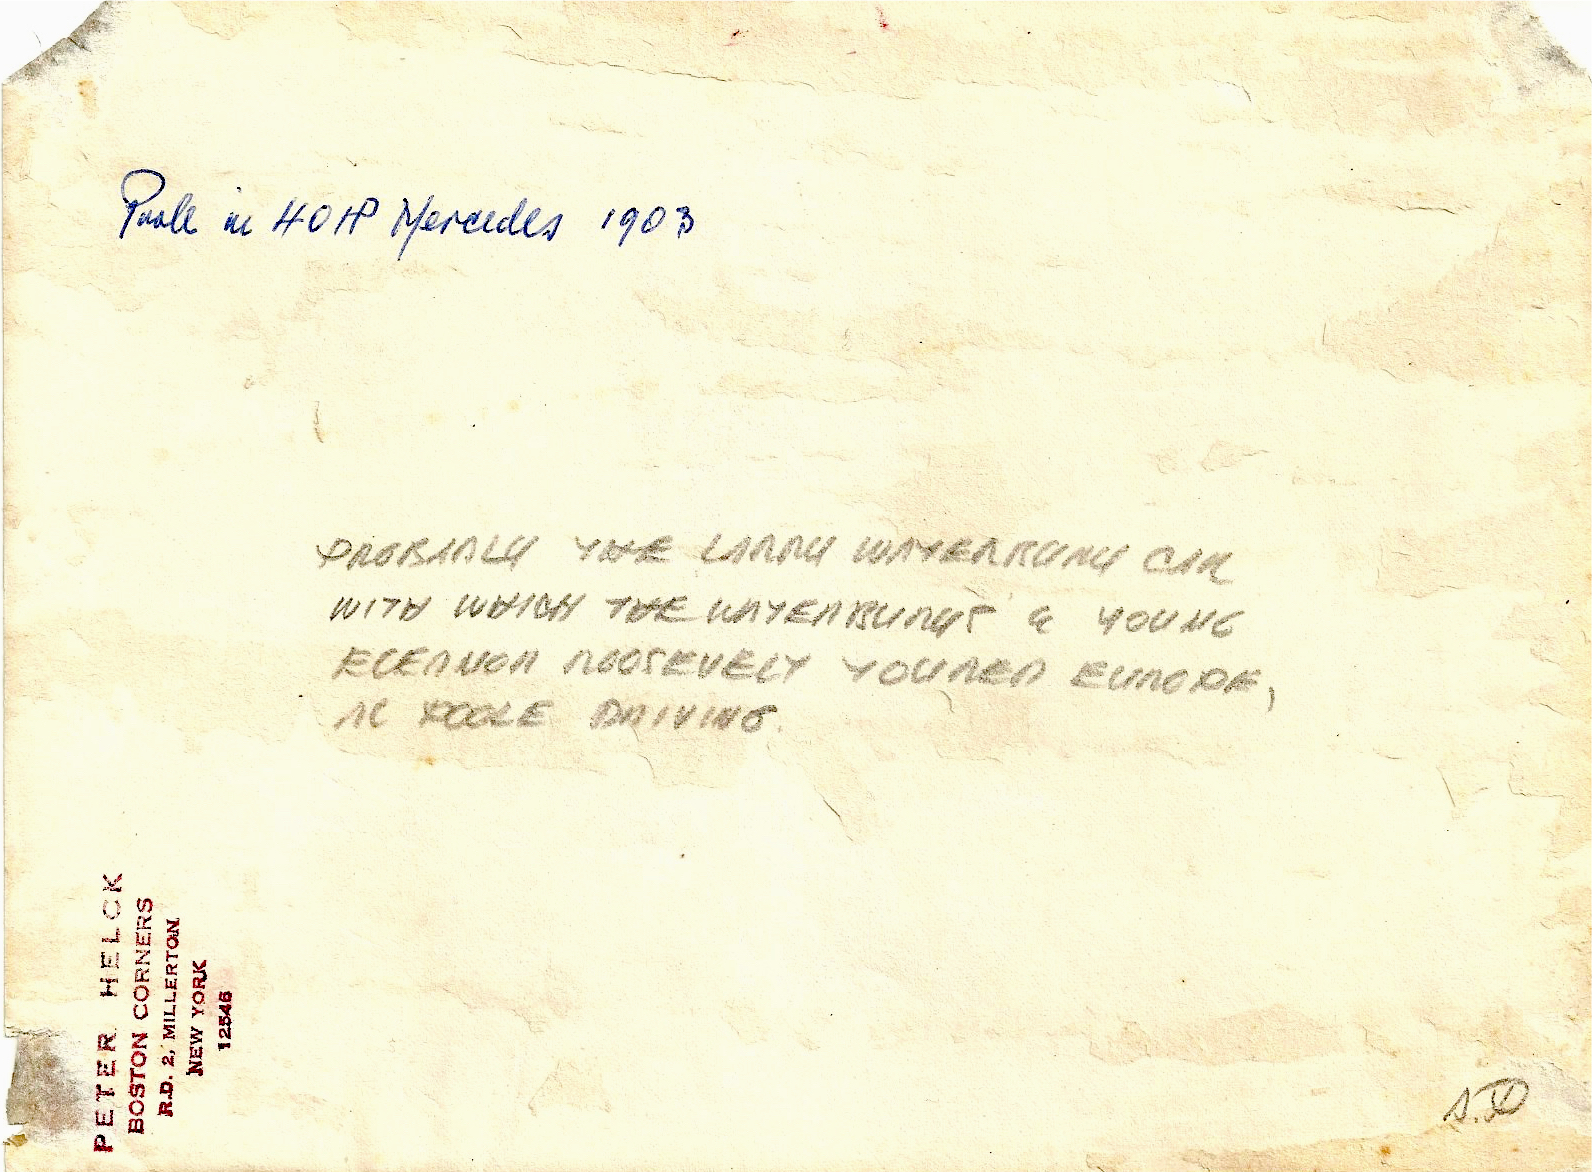 Poole in 40 HP Mercedes 1903
PROBABLY THE LARRY WATERBURY CAR
WITH WHICH THE WATERBURYS & YOUNG
ELEANOR ROOSEVELT TOURED EUROPE,
AL POOLE DRIVING.
PETER HELCK
BOSTON CORNERS
R.D. 2, MILLERTON
NEW YORK
12546